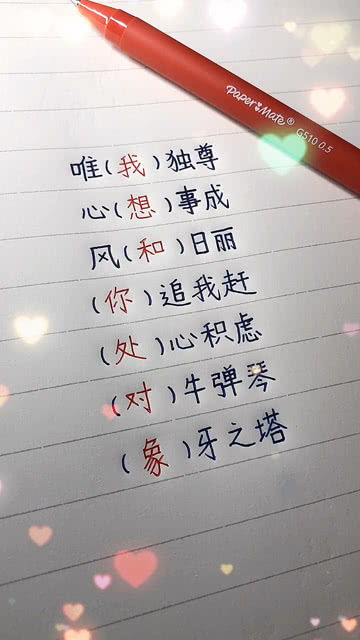 PAPER MATE® G510 0.5
唯(我)独尊
心(想)事成
风(和)日丽
(你)追我赶
(处)心积虑
(对)牛弹琴
(象)牙之塔